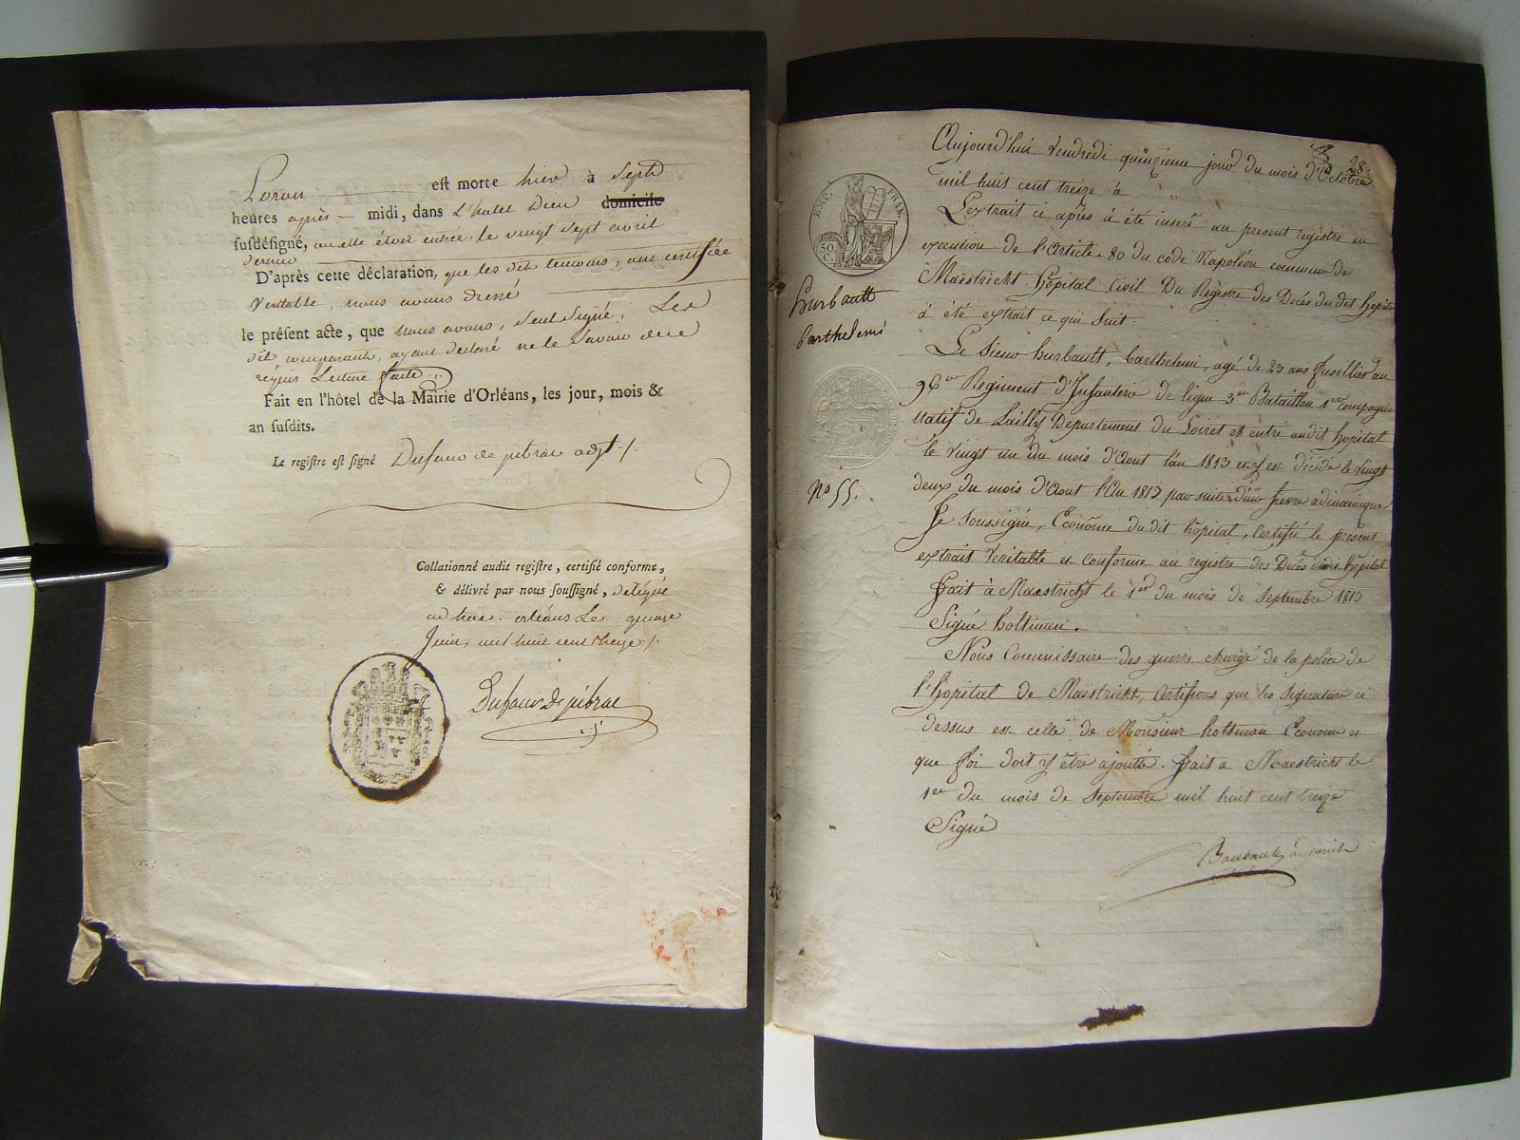 Loron est morte hier à Sept
heures après - midi, dans L'hotel Dieu domicile
susdésigné, ou elle étoit entrée le vingt Sept avril
dernier
D'après cette déclaration, que les dit temoins, ont certifiée
Veritable, nous avons dressé
le présent acte, que nous avons, Seul Signé, Les
dit comparants, ayant déclaré ne le Savoir de ce
requis Lecture faite.
Fait en l'hôtel de la Mairie d'Orléans, les jour, mois &
an susdits.
Le registre est signé Dufaur de pibrac adjt
Collationné audit registre, certifié conforme,
& délivré par nous soussigné, délégué
orléans Le quinze
Juin, mil huit cent treize
Dufaur De pibrac
Aujourd'hui Vendredi quinzieme jour du mois d'Octobre
28
mil huit cent treize à
L'extrait ci après à été inseré au present registre en
execution de l'Article 80 du code Napoléon commune de
EMP. FRAN.
50 C.
Maëstricht hôpital Civil Du Régistre des Décés du dit hopital
à été extrait ce qui Suit.
Hurbault
Barthelemi
Le Sieur hurbault, barthelemi, agé de 23 ans fusillier au
96eme Regiment d'Infanterie de ligne 3eme Bataillon 1ere Compagnie
Natif de Lailly Departement du Loiret est entré audit hopital
le vingt un du mois d'Aout l'an 1813 et y est décédé le vingt
No 55.
deux du mois d'Aout l'An 1813 par suite d'une fievre adinamique
Je Soussigné, Econôme dudit hôpital, Certifie le présent
extrait Veritable et conforme au registre des Décés dudit hopital
fait à Maestricht le 1er du mois de Septembre 1813
Signé holtman.
Nous Commissaire des guerre chargé de la police de
l'hopital de Maestricht, Certifions que la Signature ci
dessus est celle de Monsieur holtman Econome et
que foi doit y être ajoutée. fait a Maestricht le
1er du mois de Septembre mil huit cent treize
Signé